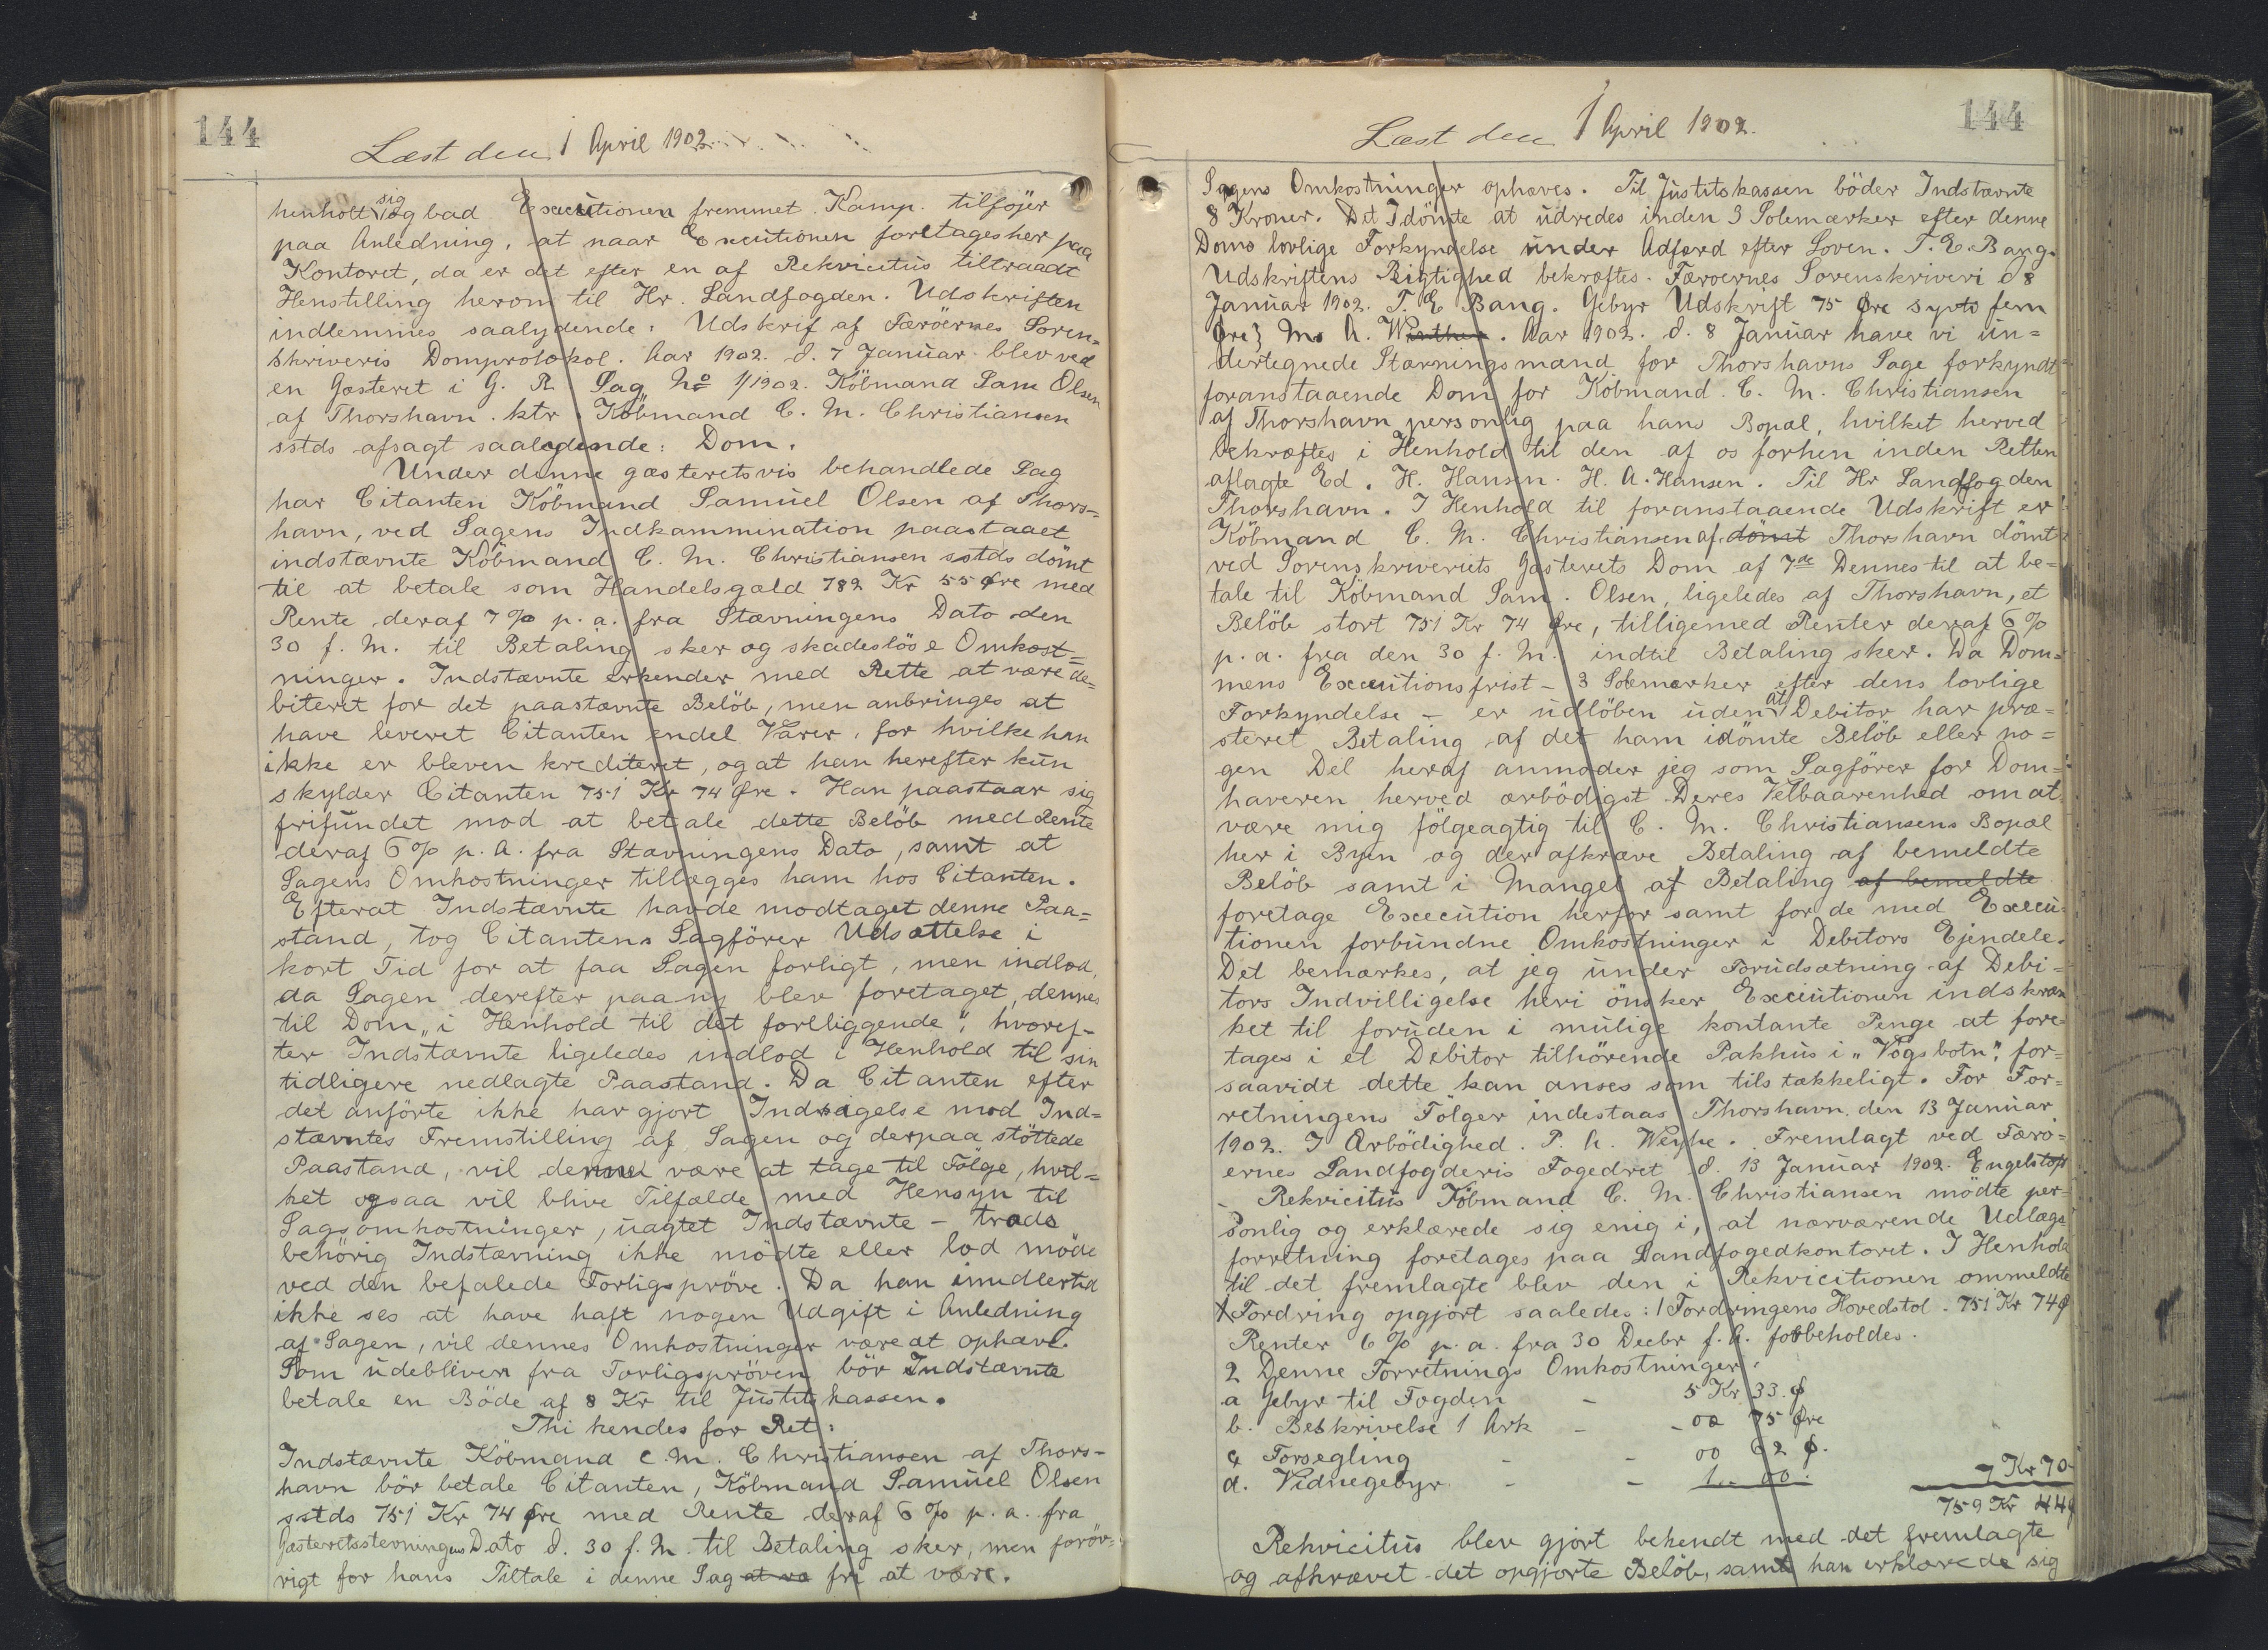 144
Læst den 1 April 1902
henholt sig og bad Executionen fremmet. Kamp. tilföjer
paa Anledning, at naar Executionen foretages her paa
Kontoret, da er det efter en af Rekvicitus tiltraadt
Henstilling herom til Hr. Landfogden. Udskriften
indlemmes saalydende: Udskrif af Færöernes Soren=
skriveris Domprotokol. Aar 1902. d. 7 Januar blev ved
en Gæsteret i G. R. Sag No 1/1902. Köbmand Sam Olsen
af Thorshavn ktr. Köbmand C. M. Christiansen
sstds afsagt saalydende: Dom.
Under denne gæsteretsvis behandlede Sag
har Citanten Köbmand Samuel Olsen af Thors=
havn, ved Sagens Indkammination paastaaet
indstævnte Köbmand C. M. Christiansen sstds dömt
til at betale som Handelsgæld 782 Kr 55 Øre med
Rente deraf 7 % p. a. fra Stævningens Dato den
30 f. M. til Betaling sker og skadeslöse Omkost=
ninger. Indstævnte erkender med Rette at være de=
biteret for det paastævnte Belöb, men anbringes at
have leveret Citanten endel Varer, for hvilke han
ikke er bleven krediteret, og at han herefter kun
skylder Citanten 751 Kr 74 Øre. Han paastaar sig
frifundet mod at betale dette Belöb med Rente
deraf 6 % p. a. fra Stævningens Dato, samt at
Sagens Omkostninger tillægges ham hos Citanten.
Efterat Indstævnte havde modtaget denne Paa=
stand, tog Citantens Sagförer Udsættelse i
kort Tid for at faa Sagen forligt, men indlod,
da Sagen derefter paany blev foretaget, dennes
til Dom „i Henhold til det foreliggende", hvoref-
ter Indstævnte ligeledes indlod i Henhold til sin
tidligere nedlagte Paastand. Da Citanten efter
det anförte ikke har gjort Indsigelse mod Ind=
stævntes Fremstilling af Sagen og derpaa stöttede
Paastand, vil denne være at tage til Fölge, hvil=
ket ogsaa vil blive Tilfælde med Hensyn til
Sagsomkostninger, uagtet Indstævnte – trods
behörig Indstævning ikke mödte eller lod möde
ved den befalede Forligspröve. Da han imidlertid
ikke ses at have haft nogen Udgift i Anledning
af Sagen, vil dennes Omkostninger være at ophæve.
Som udebliven fra Forligspröven bör Indstævnte
betale en Böde af 8 Kr til Justitskassen.
Thi kendes for Ret:
Indstævnte Köbmand C. M. Christiansen af Thors-
havn bör betale Citanten, Köbmand Samuel Olsen
sstds 751 Kr 74 Øre med Rente deraf 6 % p. a. fra
Gæsteretsstevningens Dato d. 30 f. M. til Betaling sker, men foröv=
rigt for hans Tiltale i denne Sag at væ fri at være.
144
Læst den 1 April 1902.
Sagens Omkostninger ophæves. Til Justitskassen böder Indstævnte
8 Kroner. Det Idömte at udredes inden 3 Solemærker efter denne
Doms lovlige Forkyndelse under Adfærd efter Loven. T. E. Bang.
Udskriftens Rigtighed bekræftes. Færoernes Sorenskriveri d 8
Januar 1902. T. E Bang. Gebyr Udskrift 75 Øre syvti fem
Øre} Aar 1902. d. 8 Januar have vi un=
dertegnede Stævningsmænd for Thorshavns Sogn forkyndt
foranstaaende Dom for Köbmand C. M. Christiansen
af Thorshavn personlig paa hans Bopæl, hvilket herved
bekræftes i Henhold til den af os forhen inden Retten
aflagte Ed. H. Hansen. H. A. Hansen. Til Hr Landfogden
Thorshavn. I Henhold til foranstaaende Udskrift er
Köbmand C. M. Christiansen af dömt Thorshavn dömt
ved Sorenskriveriets Gæsterets Dom af 7de Dennes til at be=
tale til Köbmand Sam. Olsen, ligeledes af Thorshavn, et
Belöb stort 751 Kr 74 Øre, tilligemed Renter deraf 6 %
p. a. fra den 30 f. M. indtil Betaling sker. Da Dom=
mens Executionsfrist – 3 Solemærker efter dens lovlige
Forkyndelse – er udlöben uden at Debitor har præ=
steret Betaling af det ham idömte Belöb eller no=
gen Del heraf anmoder jeg som Sagförer for Dom=
haveren herved ærbödigst Deres Velbaarenhed om at
være mig fölgeagtig til C. M. Christiansens Bopæl
her i Byen og der afkræve Betaling af bemeldte
Belöb samt i Mangel af Betaling af bemeldte
foretage Execution herfor samt for de med Execu=
tionen forbundne Omkostninger i Debitors Ejendele.
Det bemærkes, at jeg under Forudsætning af Debi=
tors Indvilligelse heri önsker Executionen indskræn
ket til foruden i mulige kontante Penge at fore=
tages i et Debitor tilhörende Pakhus i „Vogsbotn", for=
saavidt dette kan anses som tilstækkeligt. For For=
retningens Fölger indestaas Thorshavn den 13 Januar
1902. I Ærbödighed. P. A. Weyhe. Fremlagt ved Færö=
ernes Landfogderis Fogedret d. 13 Januar 1902. Engelstoft
– Rekvicitus Köbmand C. M. Christiansen mödte per=
sonlig og erklærede sig enig i, at nærværende Udlægs
forretning foretages paa Landfogedkontoret. I Henhold
til det fremlagte blev den i Rekvicitionen ommeldte
Fordring opgjört saaledes: 1 Fordringens Hovedstol. 751 Kr 74 Ø
Renter 6 % p. a. fra 30 Decbr f. A. forbeholdes.
2 Denne Forretnings Omkostninger:
a Gebyr til Fogden – 5 Kr 33 Ø
b. Beskrivelse 1 Ark – - 00 75 Øre
c Forsegling - - 00 62 Ø.
d. Vidnegebyr - – 1 – 00. 7 Kr 70
759 Kr 44 Ø
Rekvicitus blev gjort bekendt med det fremlagte
og afkrævet det opgjorte Belöb, samt han erklærede sig